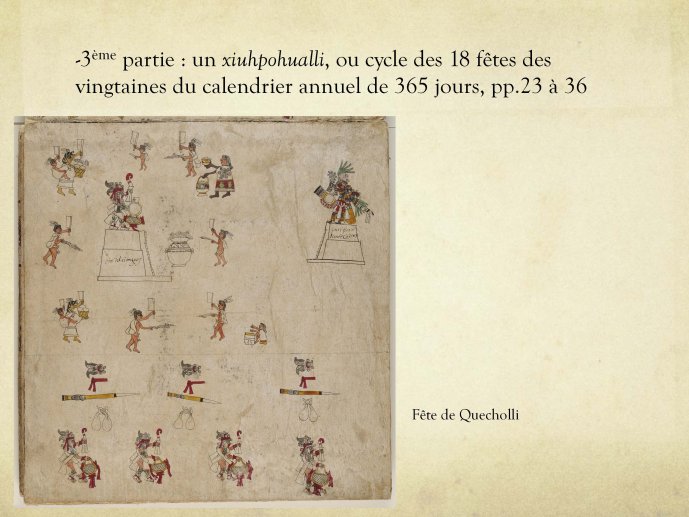 -3ème partie : un xiuhpohualli, ou cycle des 18 fêtes des
vingtaines du calendrier annuel de 365 jours, pp.23 à 36
Fête de Quecholli